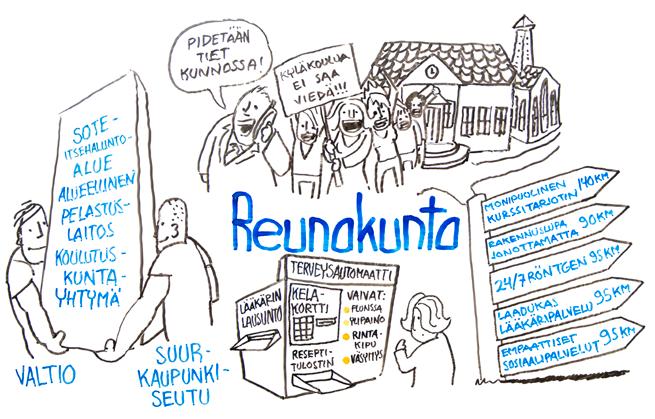 PIDETÄÄN
TIET
KUNNOSSA!
KYLÄKOULUA
EI SAA
VIEDÄ!!!
SOTE-
ITSEHALLINTO-
ALUE
ALUEELLINEN
PELASTUS-
LAITOS
KOULUTUS-
KUNTA-
YHTYMÄ
VALTIO
SUUR-
KAUPUNKI-
SEUTU
Reunakunta
TERVEYSAUTOMAATTI
LÄÄKÄRIN
LAUSUNTO
KELA-
KORTTI
RESEPTI-
TULOSTIN
VAIVAT:
FLUNSSA
YLIPAINO
RINTA-
KIPU
VÄSYTYS
MONIPUOLINEN
KURSSITARJOTIN 140 KM
RAKENNUSLUPA
JONOTTAMATTA 90 KM
24/7 RÖNTGEN 95 KM
LAADUKAS
LÄÄKÄRIPALVELU 95 KM
EMPAATTISET
SOSIAALIPALVELUT 95 KM